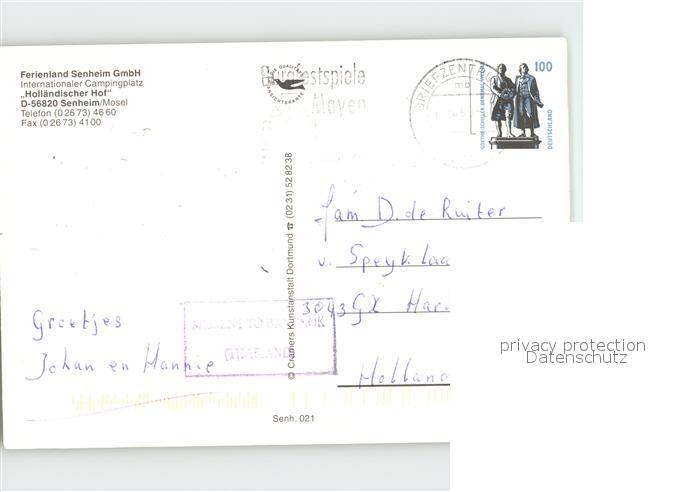 Ferienland Senheim GmbH
Internationaler Campingplatz
„Holländischer Hof“
D-56820 Senheim/Mosel
Telefon (0 26 73) 46 60
Fax (0 26 73) 41 00
Burgfestspiele
Mayen
BRIEFZENTRUM
mb
100
GOETHE-SCHILLER-DENKMAL WEIMAR
DEUTSCHLAND
© Cramers Kunstanstalt Dortmund ☎ (02 31) 52 82 38
fam D. de Ruiter
v. Speyk laa
3043 GX Har
Holland
Groetjes
Johan en Hannie
MISSENT TO BANGKOK
(THAILAND)
Senh. 021
privacy protection
Datenschutz